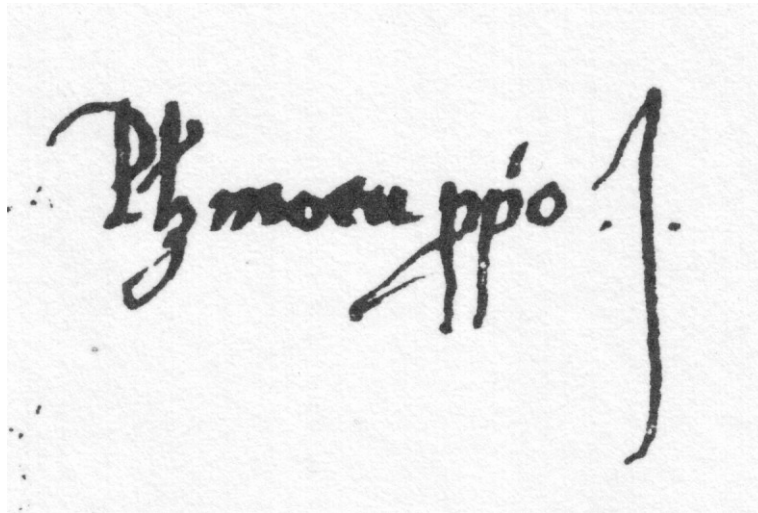 Plz motu ppo .J.